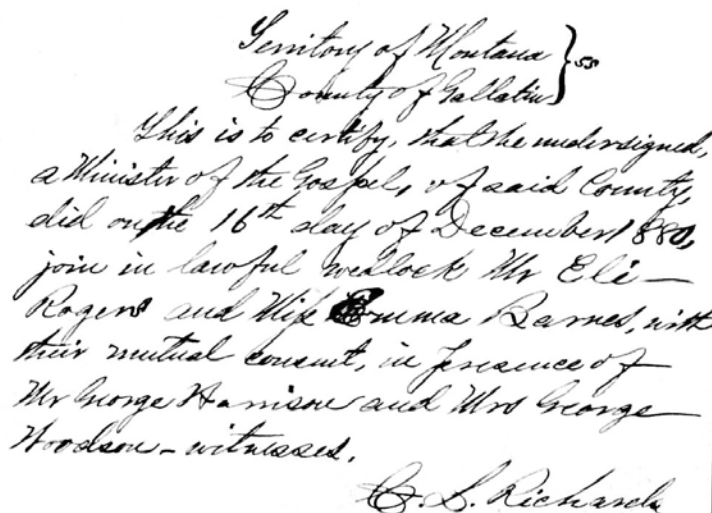 Territory of Montana } ss
County of Gallatin
This is to certify, that the undersigned,
a Minister of the Gospel, of said County,
did on the 16th day of December 1880,
join in lawful wedlock Mr Eli
Rogers and Miss Emma Barnes, with
their mutual consent, in presence of
Mr George Harrison and Mrs George
Woodson - witnesses.
C. L. Richards